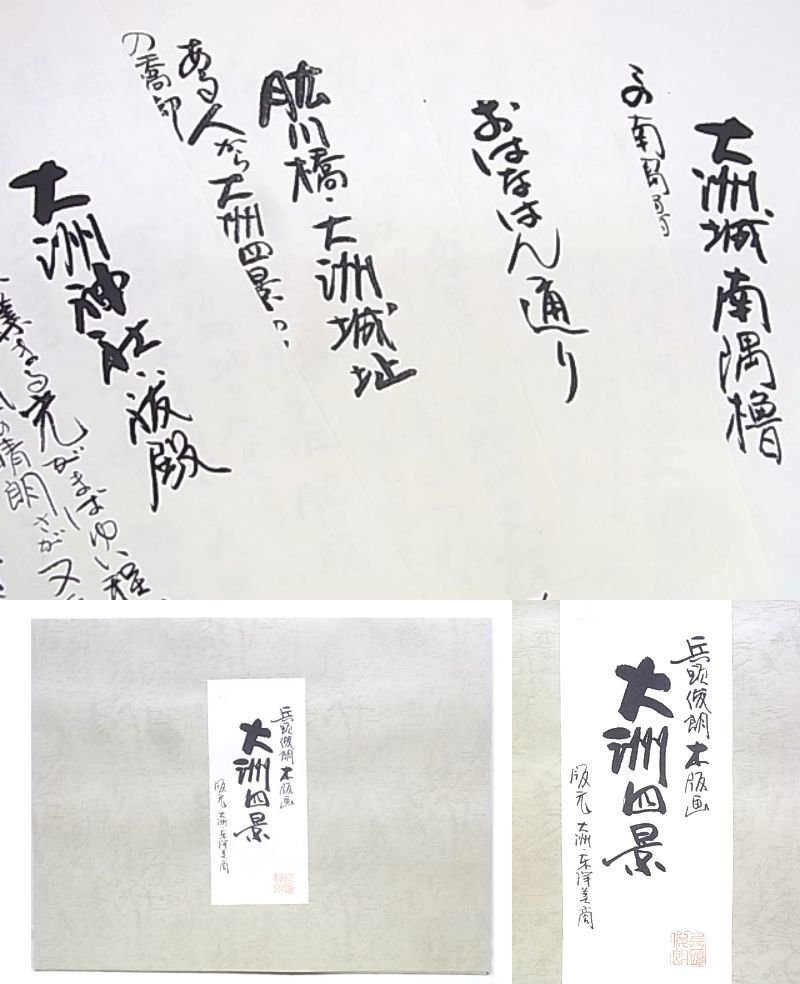 大洲城南隅櫓
この南
おはなはん通り
肱川橋・大洲城址
ある人から大洲四景
大洲神社祓殿
なる光がまばゆい程
の晴朗さが又
兵頭俊朗木版画
大洲四景
版元 大洲・东洋美商
兵頭俊朗木版画
大洲四景
版元 大洲・东洋美商